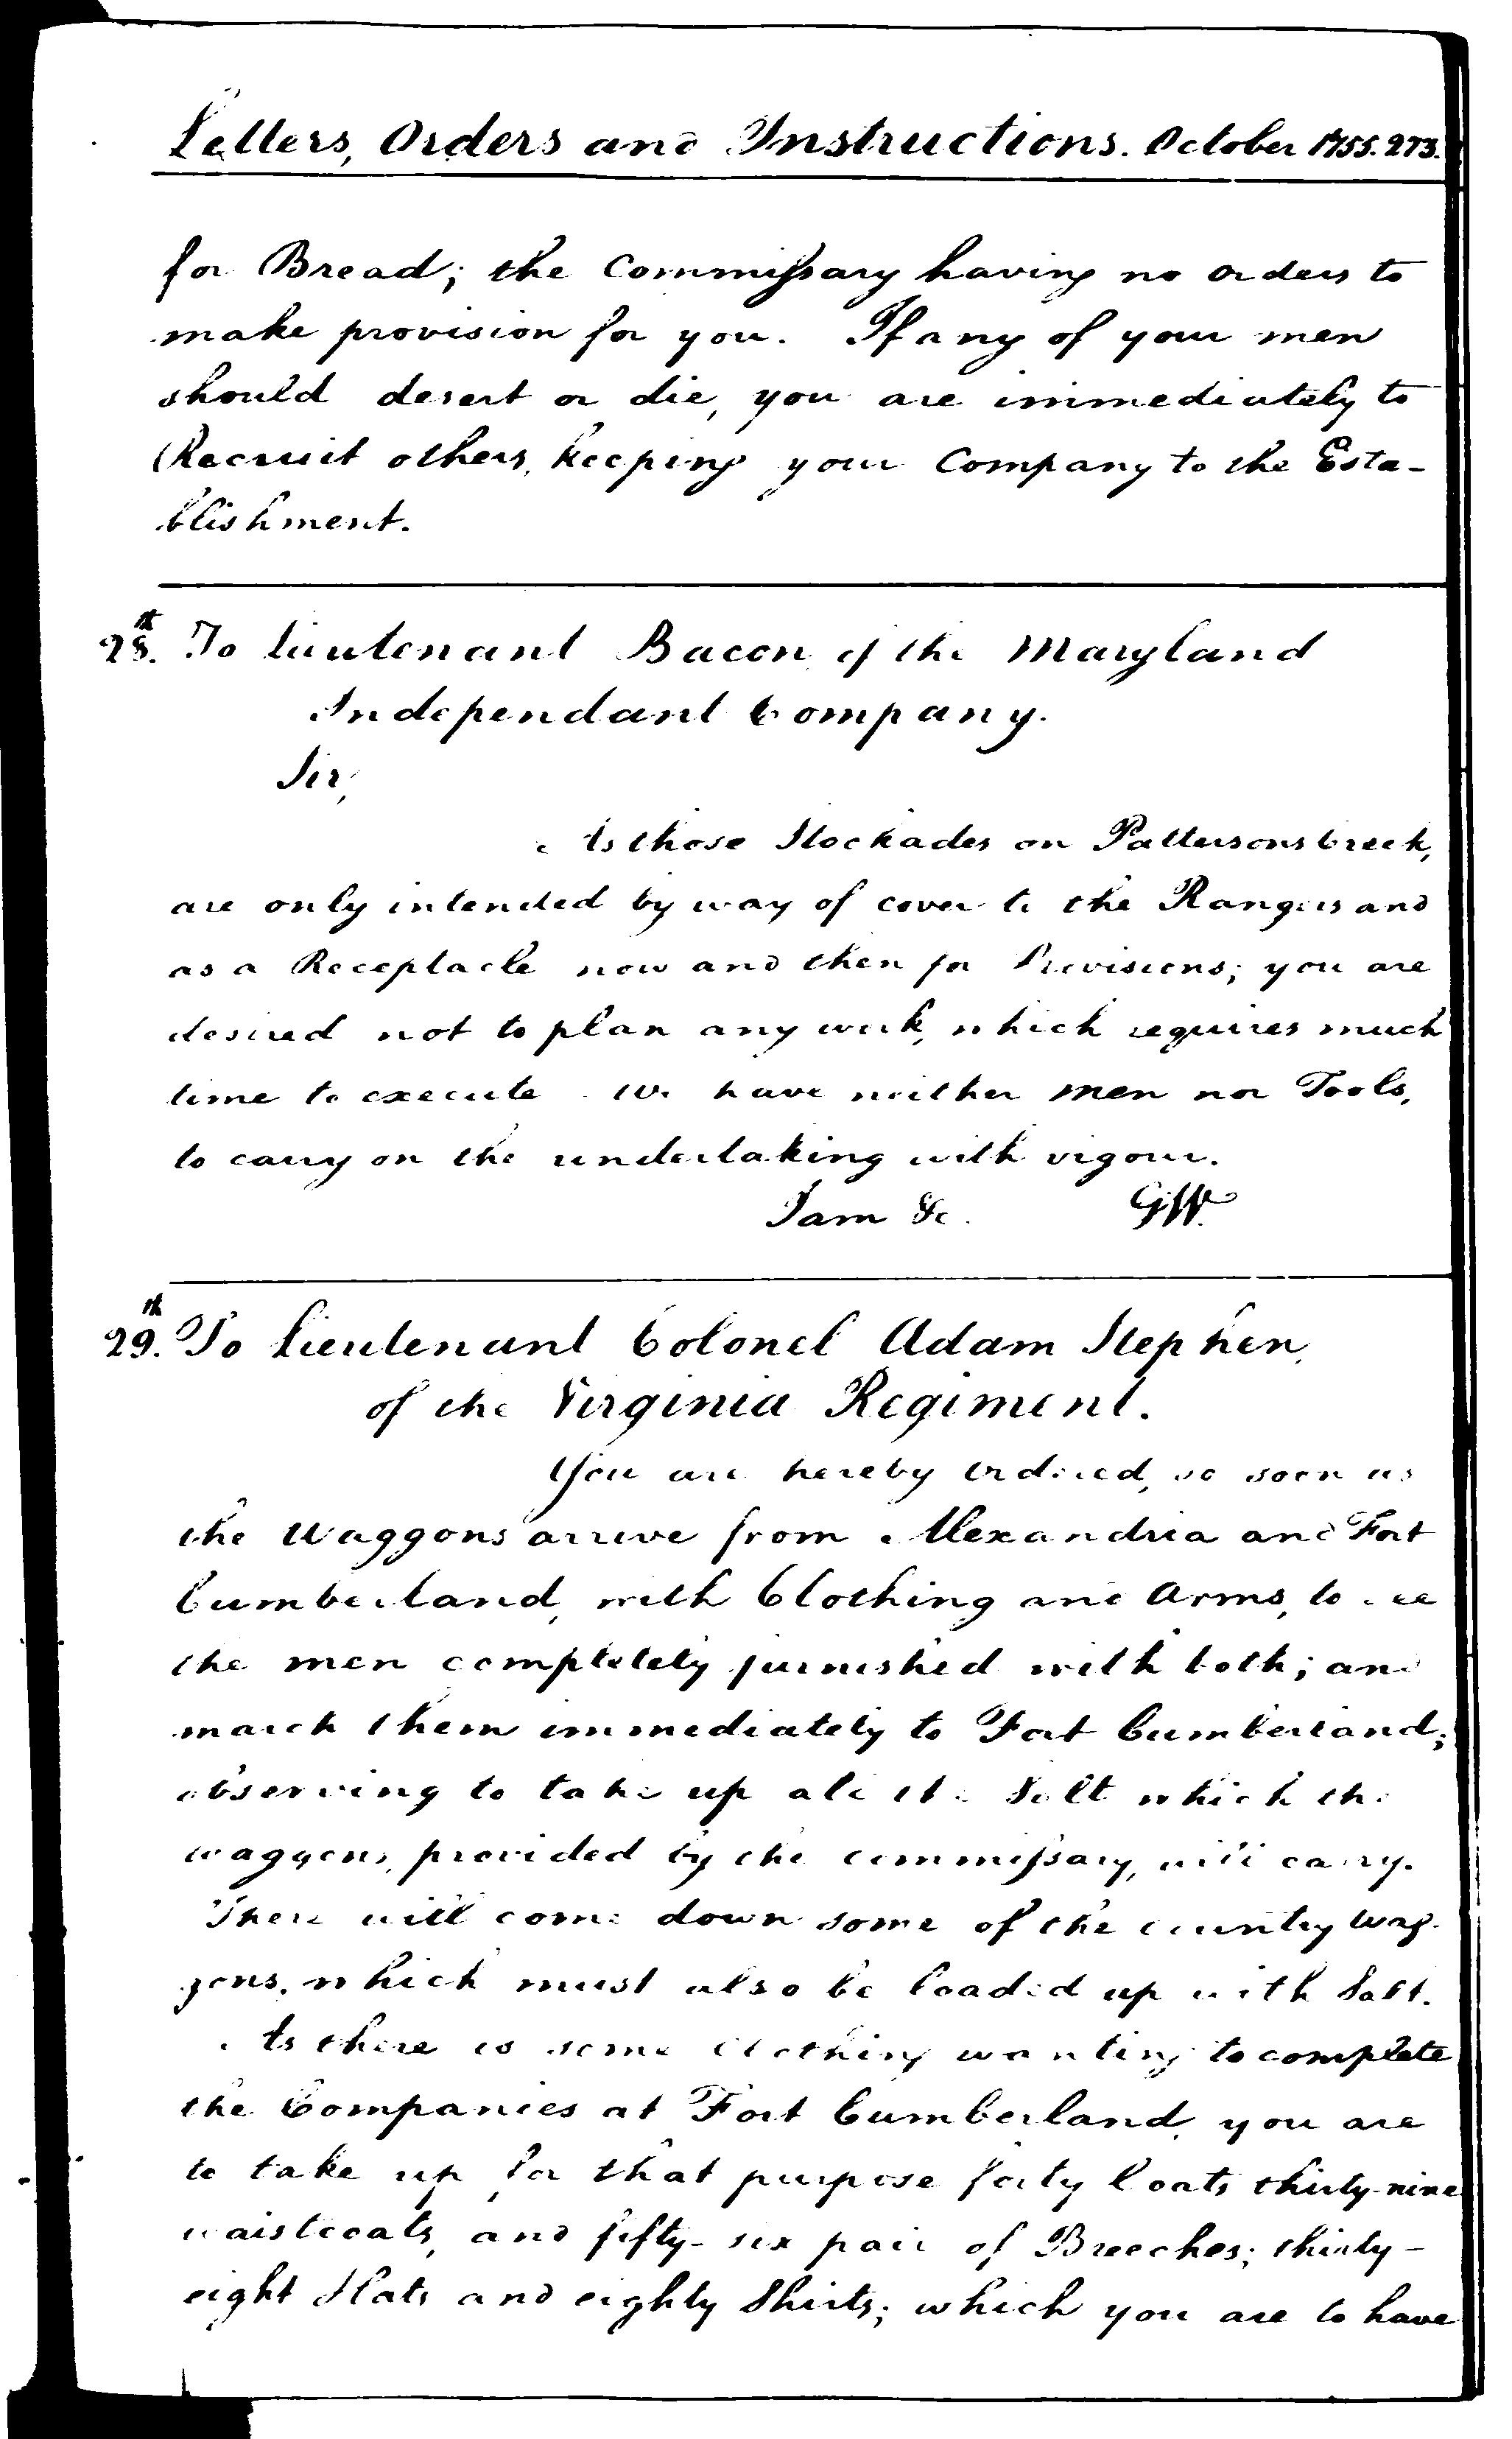 Letters, Orders and Instructions. October 1755. 273.
for Bread; the Commissary having no orders to
make provision for you. If any of your men
should desert or die, you are immediately to
Recruit others, keeping your Company to the Esta-
blishment.
28th. To Lieutenant Bacon of the Maryland
Independant Company.
Sir,
As those Stockades on Pattersons Creek,
are only intended by way of cover to the Rangers and
as a Receptacle now and then for Provisions; you are
desired not to plan any work, which requires much
time to execute. We have neither men nor Tools,
to carry on the undertaking with vigour.
I am &c. GW.
29th. To Lieutenant Colonel Adam Stephen,
of the Virginia Regiment.
You are hereby ordered, so soon as
the Waggons arrive from Alexandria and Fort
Cumberland, with Clothing and Arms, to see
the men completely furnished with both; and
march them immediately to Fort Cumberland;
observing to take up all the Salt which the
waggons, provided by the commissary, will carry.
There will come down some of the country Wag-
gons, which must also be loaded up with Salt.
As there is some clothing wanting to complete
the Companies at Fort Cumberland, you are
to take up for that purpose forty Coats, thirty-nine
waistcoats, and fifty-six pair of Breeches; thirty-
eight Hats and eighty Shirts; which you are to have